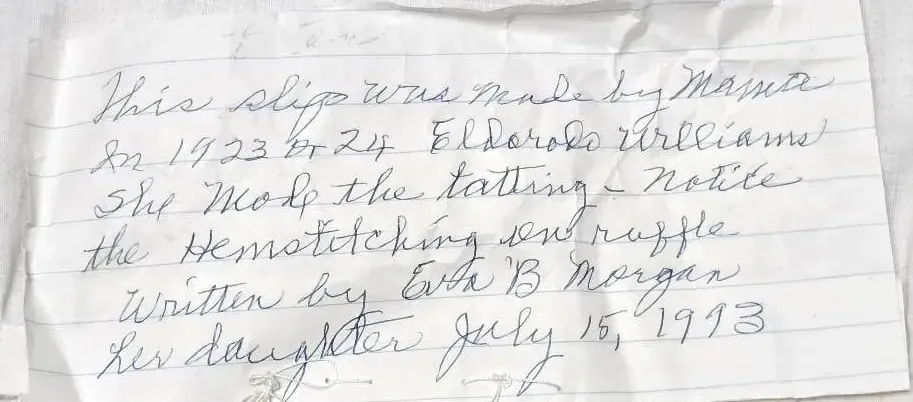 This slip was made by Mama
In 1923 or 24 Eldorado Williams
She Made the tatting - notice
the Hemstitching on ruffle
Written by Eva B Morgan
her daughter July 15, 1993